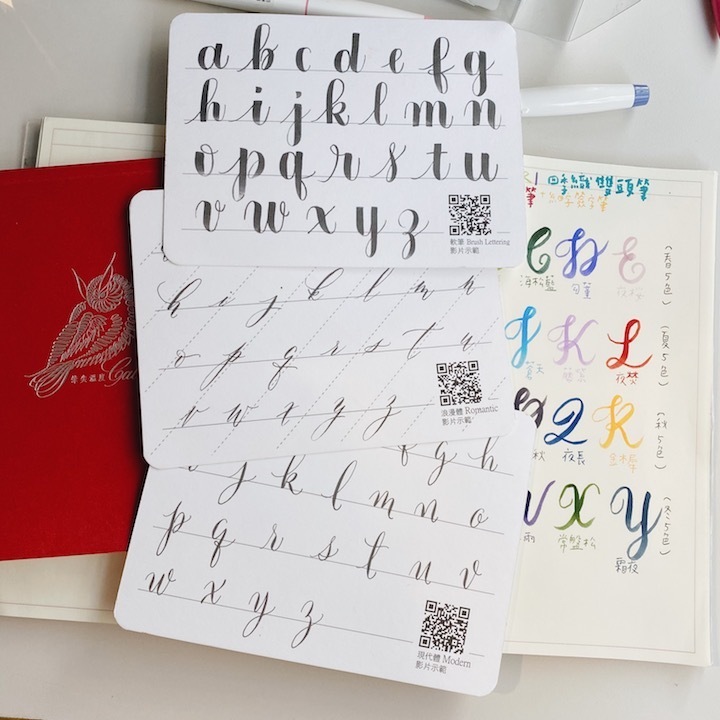 a b c d e f g
h i j k l m n
o p q r s t u
v w x y z
軟筆 Brush Lettering
影片示範
h i j k l m n
o p q r s t u
v w x y z
浪漫體 Romantic
影片示範
f g h
j k l m n o
p q r s t u v
w x y z
現代體 Modern
影片示範
四季織雙頭筆
C D E
海松藍
(春5色)
J K L
蒼天
夜焚
(夏5色)
Q R
夜長
金木犀
(秋5色)
X Y
常盤松
霜夜
(冬5色)